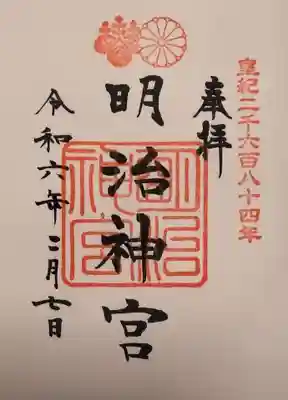 皇紀二千六百八十四年
奉拝
明治神宮
令和六年二月七日
明治神宮